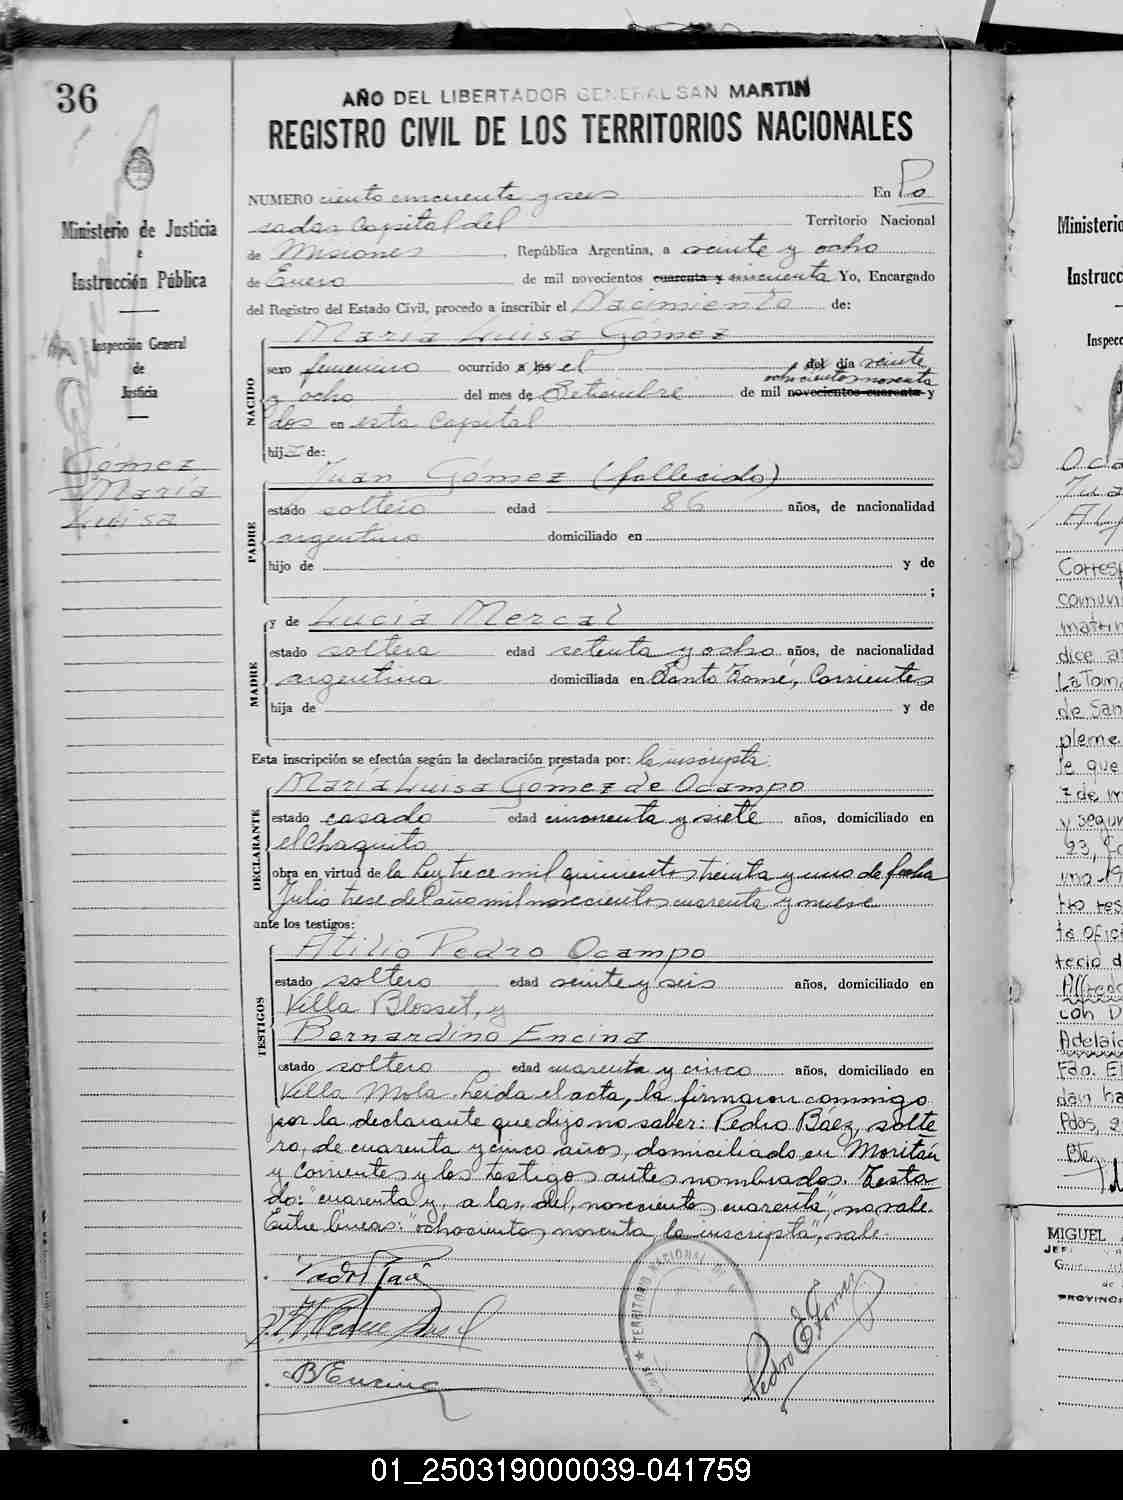 36
AÑO DEL LIBERTADOR GENERAL SAN MARTIN
REGISTRO CIVIL DE LOS TERRITORIOS NACIONALES
Ministerio de Justicia
e
Instrucción Pública
Inspección General
de
Justicia
Gómez
María
Luisa
NUMERO ciento cincuenta y seis En Po
sadas Capital del Territorio Nacional
de Misiones, República Argentina, a veinte y ocho
de Enero de mil novecientos cuarenta y cincuenta Yo, Encargado
del Registro del Estado Civil, procedo a inscribir el Nacimiento de:
NACIDO
María Luisa Gómez
sexo femenino ocurrido a las el del día veinte
ochocientos noventa
y ocho del mes de Setiembre de mil novecientos cuarenta y
dos en esta Capital
hija de:
PADRE
Juan Gómez (fallecido)
estado soltero edad 86 años, de nacionalidad
argentino domiciliado en
hijo de y de
;
MADRE
y de Lucía Mercal
estado soltera edad setenta y ocho años, de nacionalidad
argentina domiciliada en Santo Tomé, Corrientes
hija de y de
Esta inscripción se efectúa según la declaración prestada por: la inscripta
DECLARANTE
María Luisa Gómez de Ocampo
estado casado edad cincuenta y siete años, domiciliado en
el Chaquito
obra en virtud de la Ley trece mil quinientos treinta y uno de fecha
Julio trece del año mil novecientos cuarenta y nueve
ante los testigos:
TESTIGOS
Atilio Pedro Ocampo
estado soltero edad veinte y seis años, domiciliado en
Villa Blosset, y
Bernardino Encina
estado soltero edad cuarenta y cinco años, domiciliado en
Villa Mola. Leida el acta, la firmaron conmigo
por la declarante que dijo no saber: Pedro Báez, solte
ro, de cuarenta y cinco años, domiciliado en Moritán
y Corrientes y los testigos antes nombrados. Testa-
do: "cuarenta y, a las, del, novecientos cuarenta", no vale.
Entre lineas: "ochocientos noventa, la inscripta", vale.
B Encina
TERRITORIO NACIONAL DE
Pedro E. Gomez
Ministerio
Instrucc
Inspecc
Corresp
comuni
matrim
dice a
La Toma
de San
pleme
le que
7 de m
y segun
23, Fo
uno 19
No res
te ofici
terio d
con D
Adelaid
Fdo. El
dan ha
Pdas, 2
MIGUEL
JEF
de
PROVINCI
01_250319000039-041759